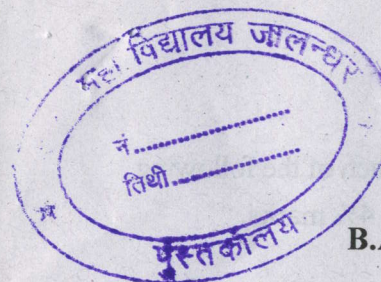 महा विद्यालय जालन्धर
नं.....................
तिथी.....................
पुस्तकालय
B.